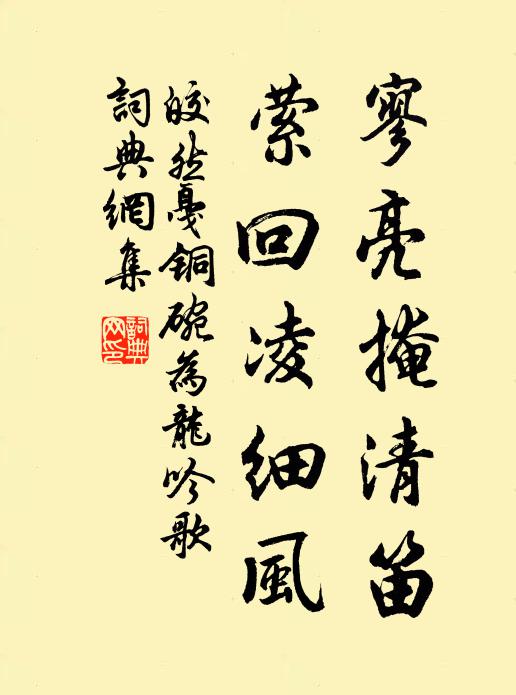 寥亮掩清笛
萦回凌细風
皎然戛銅碗為龍吟歌
詞典網集
詞典網印